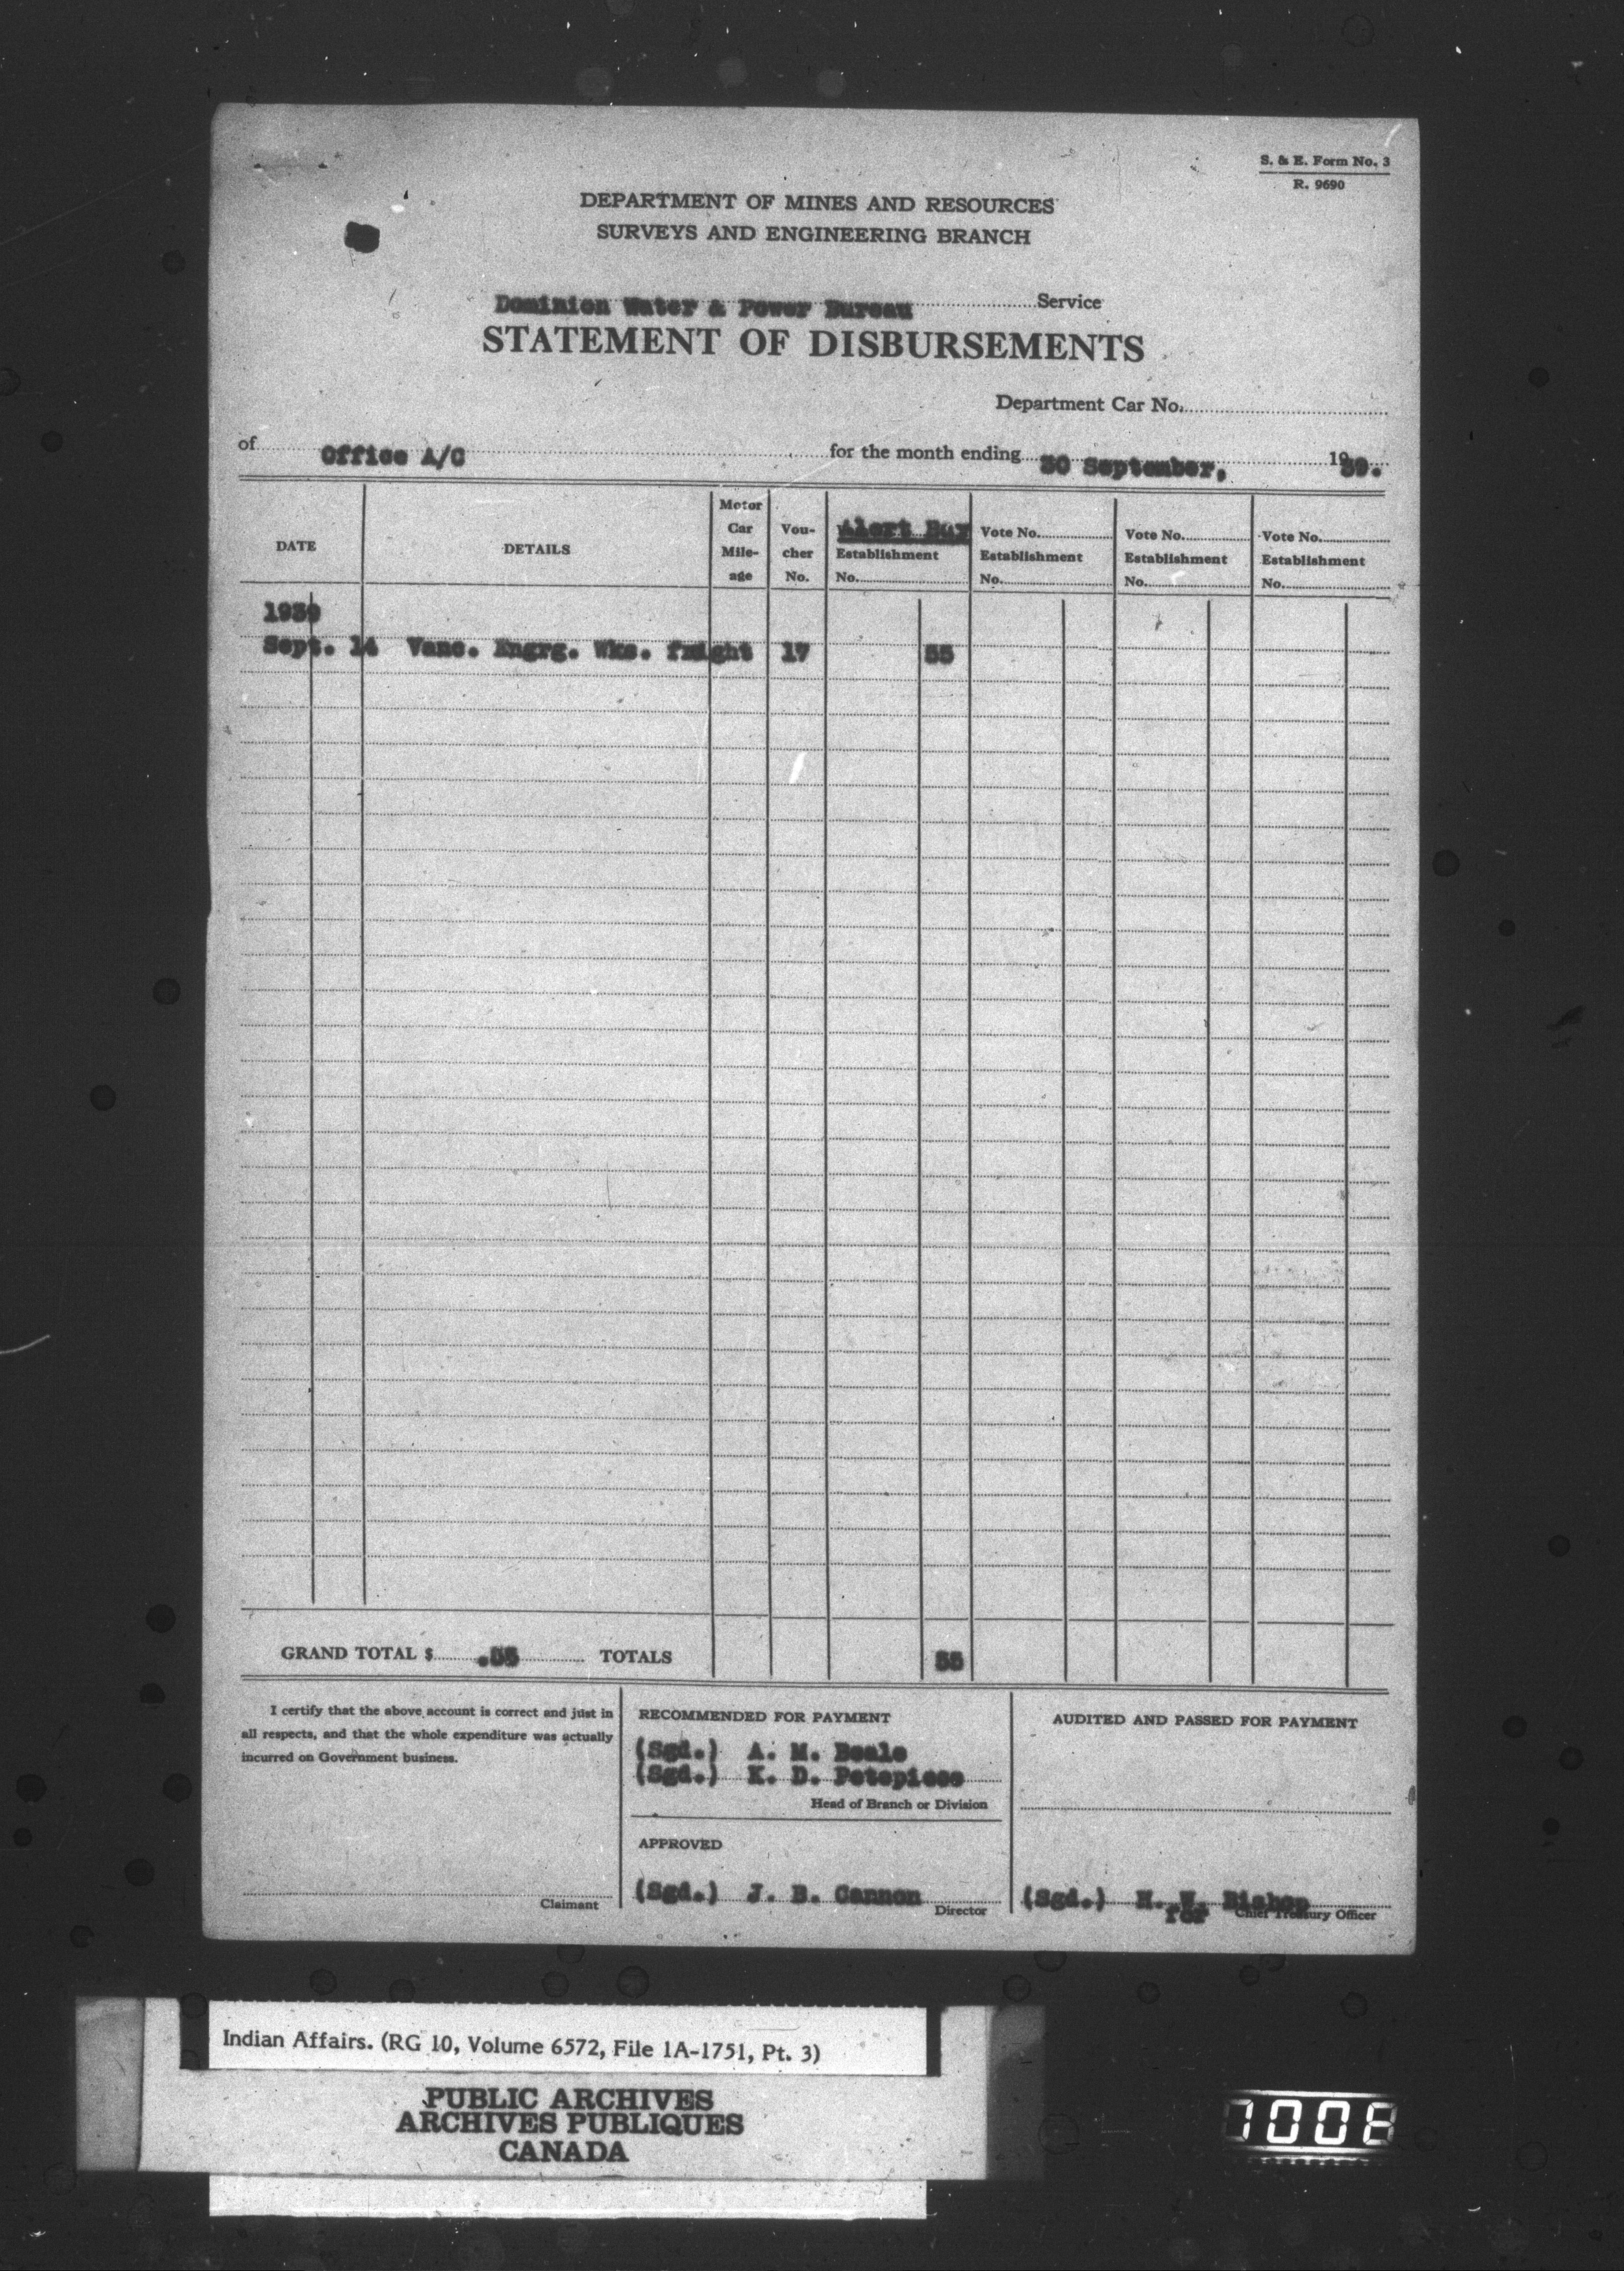 S. & E. Form No. 3
R. 9690
DEPARTMENT OF MINES AND RESOURCES
SURVEYS AND ENGINEERING BRANCH
Dominion Water & Power Bureau Service
STATEMENT OF DISBURSEMENTS
Department Car No.
of Office A/C for the month ending 30 September, 1939.
DATE
DETAILS
Motor
Car
Mile-
age
Vou-
cher
No.
Alert Bay
Establishment
No.
Vote No.
Establishment
No.
Vote No.
Establishment
No.
Vote No.
Establishment
No.
1939
Sept. 14 Vanc. Engrg. Wks. 17 55
GRAND TOTAL $ .55 TOTALS 55
I certify that the above account is correct and just in
all respects, and that the whole expenditure was actually
incurred on Government business.
Claimant
RECOMMENDED FOR PAYMENT
(Sgd.) A. M. Beale
(Sgd.) K. D. Petepiece
Head of Branch or Division
APPROVED
(Sgd.) J. B. Cannon
Director
AUDITED AND PASSED FOR PAYMENT
(Sgd.) H. W. Bishop
for Chief Treasury Officer
Indian Affairs. (RG 10, Volume 6572, File 1A-1751, Pt. 3)
PUBLIC ARCHIVES
ARCHIVES PUBLIQUES
CANADA